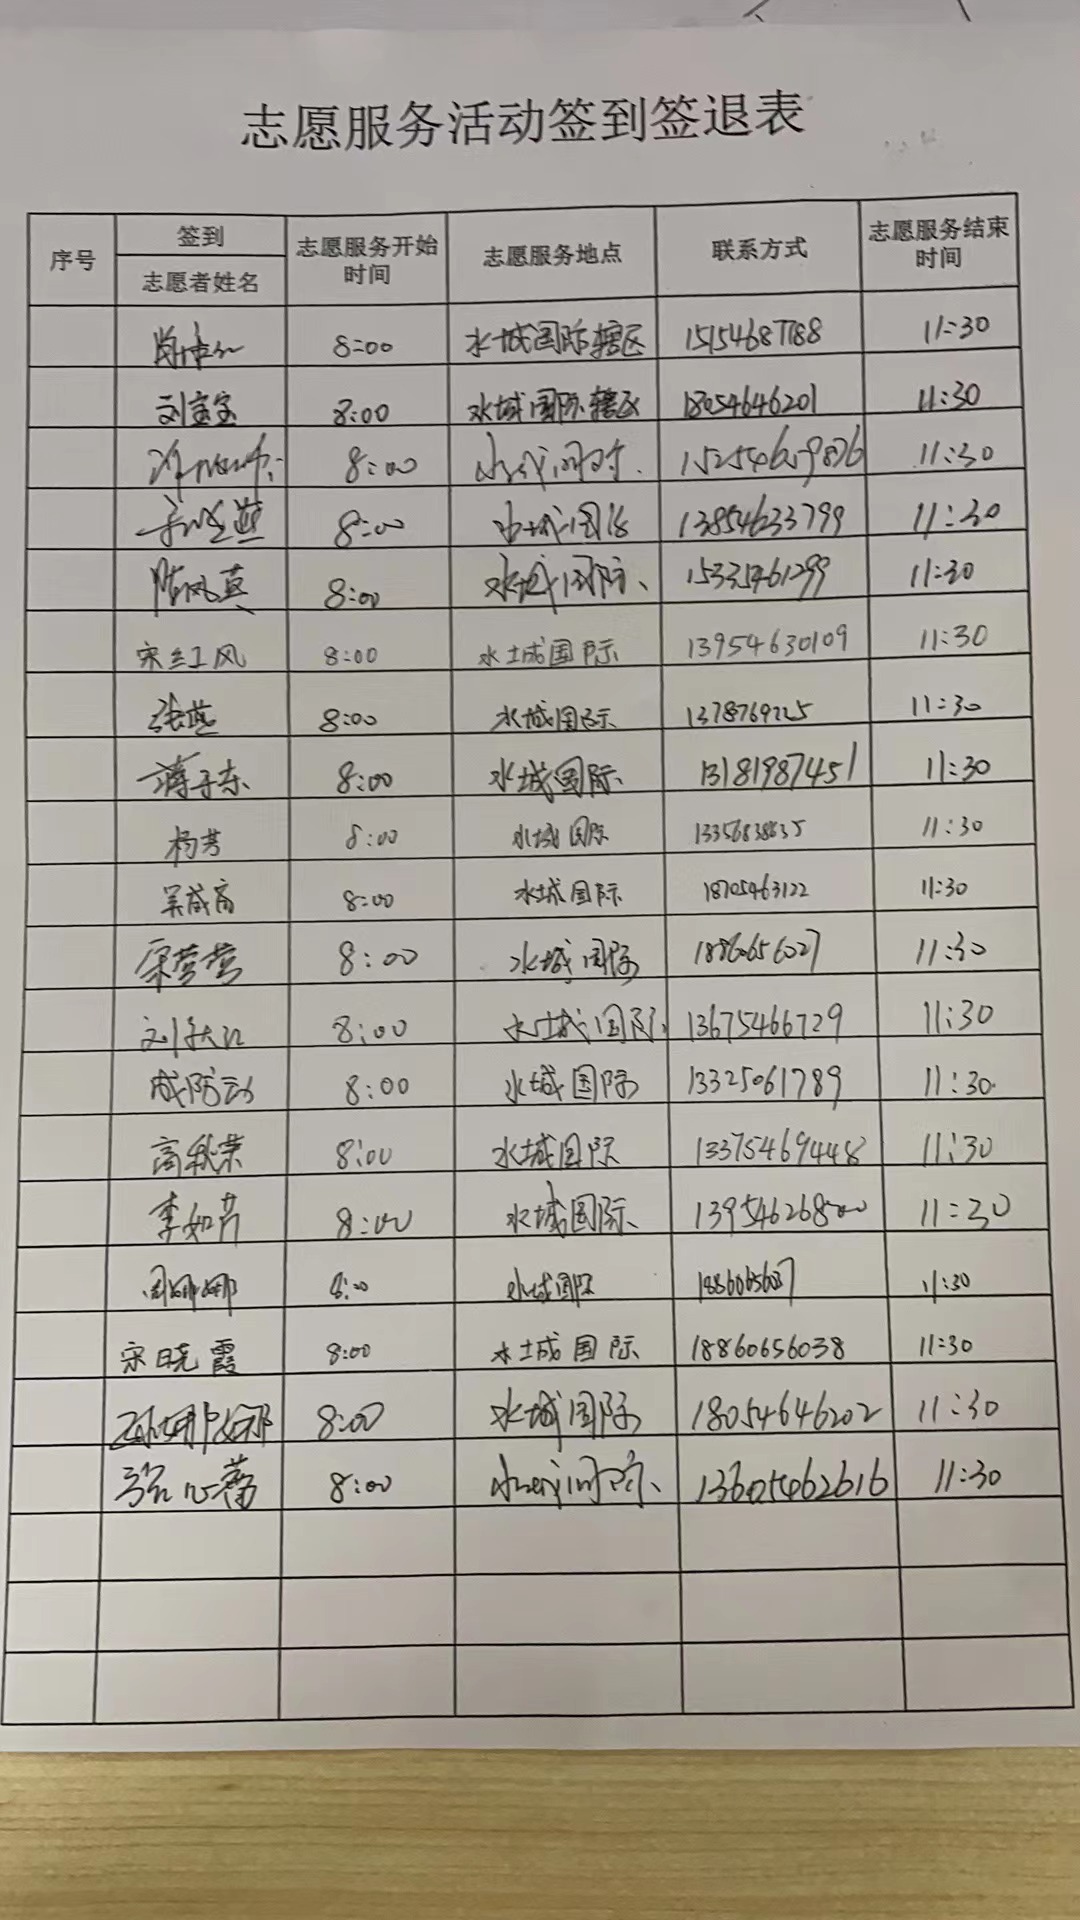 志愿服务活动签到签退表
序号 签到 志愿者姓名 志愿服务开始时间 志愿服务地点 联系方式 志愿服务结束时间
8:00 水城国际辖区 11:30
刘宝宝 8:00 水城国际辖区 18054646201 11:30
8:00 11:30
8:00 水城国际 13854633799 11:30
陈凤英 8:00 水城国际、 11:30
宋红风 8:00 水城国际 13954630109 11:30
张燕 8:00 水城国际 11:30
蒋子东 8:00 水城国际 13181987451 11:30
杨芳 8:00 水城国际 11:30
吴成高 8:00 水城国际 18705463122 11:30
宋莹莹 8:00 水城国际 18860656027 11:30
8:00 水城国际 13675466729 11:30
成防动 8:00 水城国际 13325061789 11:30
高秋荣 8:00 水城国际 13375469448 11:30
李如芹 8:00 水城国际 13954626800 11:30
周娜娜 8:00 水城国际 11:30
宋晓霞 8:00 水城国际 18860656038 11:30
8:00 水城国际 18054646202 11:30
张心蕾 8:00 13605462616 11:30